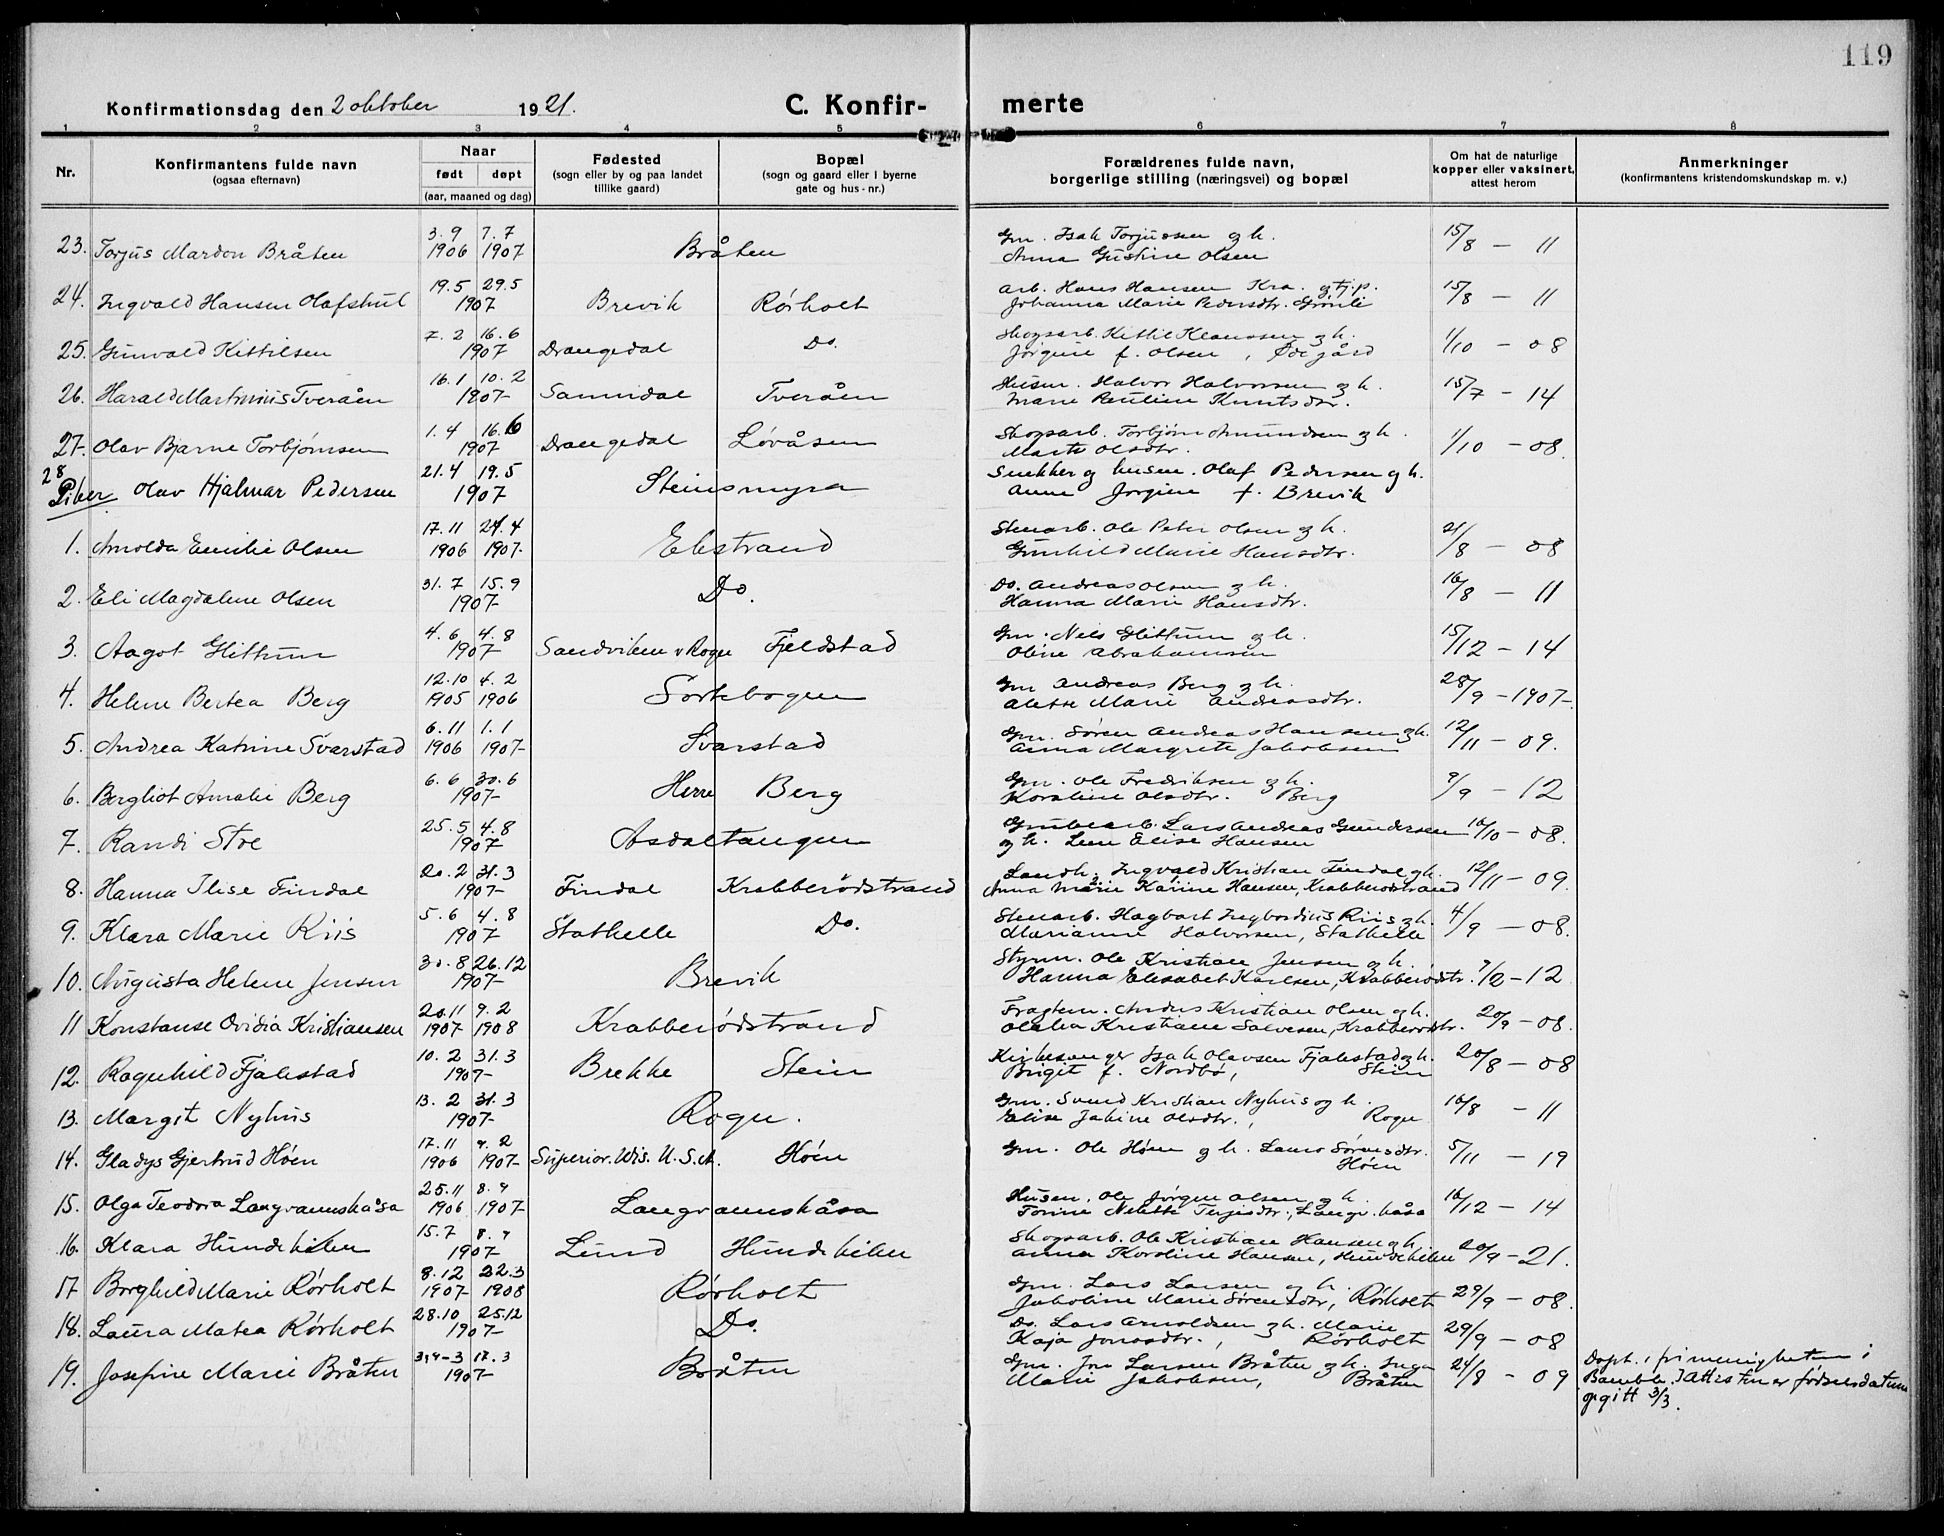 119
Konfirmationsdag den 2 oktober 1921. C. Konfir- merte
1 2 3 4 5 6 7 8
Nr. Konfirmantens fulde navn (ogsaa efternavn) Naar født døpt (aar, maaned og dag) Fødested (sogn eller by og paa landet tillike gaard) Bopæl (sogn og gaard eller i byerne gate og hus-nr.) Forældrenes fulde navn, borgerlige stilling (næringsvei) og bopæl Om hat de naturlige kopper eller vaksinert, attest herom Anmerkninger (konfirmantens kristendomskundskap m. v.)
23. Torjus Mardon Bråten 3.9 1906 7.7 1907 Bråten Gm. Isak Torjussen og h. Anna Gustine Olsen 15/8 - 11
24. Ingvald Hansen Olafskul 19.5 29.5 1907 Brevik Rørholt Arb. Hans Hansen Kra. og pp. Johanna Marie Pedersdtr. Grønli 15/8 - 11
25. Gunvald Kittilsen 7.2 16.6 1907 Drangedal Do. Skogsarb. Kittil Klaussen og h. Jørgine f. Olsen, Ødegård 1/10 - 08
26. Harald Martinius Tveråen 16.1 10.2 1907 Sannidal Tveråen Husm. Halvor Halvorsen og h. Marie Pauline Knutsdtr. 15/7 - 14
27. Olav Bjarne Torbjørnsen 1.4 16.6 1907 Drangedal Løvåsen Skogsarb. Torbjørn Amundsen og h. Marte Olsdtr. 1/10 - 08
28 Olav Hjalmar Pedersen 21.4 19.5 1907 Steinsmyra Snekker og husm. Olaf Pedersen og h. Anne Jorgine f. Brevik
Piker
1. Arnolda Emilie Olsen 17.11 1906 24.4 1907 Ekstrand Stenarb. Ole Peter Olsen og h. Gunhild Marie Hansdtr. 21/8 - 08
2. Eli Magdalene Olsen 31.7 15.9 1907 Do. Do. Andreas Olsen og h. Hanna Marie Hansdtr. 16/8 - 11
3. Aagot Glittum 4.6 4.8 1907 Sandviken v Rogn Fjeldstad Gm. Nils Glittum og h. Oline Abrahamsen 15/12 - 14
4. Helene Bertea Berg 12.10 1905 4.2 1906 Sortebogen Gm Andreas Berg og h. Alette Marie Andersdtr. 28/9 - 1907
5. Andrea Katrine Svarstad 6.11 1906 1.1 1907 Svarstad Gm. Søren Andreas Hansen og h. Anna Margrete Jakobsen 12/11 - 09.
6. Bergliot Amalie Berg 6.6 30.6 1907 Herre Berg Gm. Ole Fredriksen og h. Koraline Olsdtr. Berg 9/9 - 12
7. Randi Stoe 25.5 4.8 1907 Asdaltangen Grubearb. Lars Andreas Gundersen og h. Lene Elise Hansen 16/10 - 08.
8. Hanna Ilise Findal 20.2 31.3 1907 Findal Krabberødstrand Landh. Ingvald Kristian Findal og h. Anna Marie Karine Hansen, Krabberødstrand 12/11 - 09
9. Klara Marie Riis 5.6 4.8 1907 Stathelle Do. Stenarb. Hagbart Ingbordius Riis og h. Marianne Halvorsen, Stathelle 4/9 - 08.
10. Augusta Helene Jensen 30.8 26.12 1907 Brevik Styrm. Ole Kristian Jensen og h. Hanna Elisabet Karlsen, Krabberødstr. 7/2 - 12
11 Konstanse Ovidia Kristiansen 20.11 1907 9.2 1908 Krabberødstrand Fragtem. Anders Kristian Olsen og h. Olalia Kristiane Salvesen, Krabberødstr. 20/9 - 08.
12. Ragnhild Fjalestad 10.2 31.3 1907 Brekke Stein Kirkesanger Isak Olavsen Fjalestad og h. Birgit f. Nordbø, Stein 20/8 - 08
13. Margit Nyhus 13.2 31.3 1907 Rogn. Gm. Svend Kristian Nyhus og h. Elise Jakine Olsdtr., Rogn 16/8 - 11
14. Gladys Gjertrud Høen 17.11 1906 4.2 1907 Superior. Wis. U.S.A. Høen Gm. Ole Høen og h. Laura Sørensdtr. Høen 5/11 - 19
15. Olga Teodora Langvannskåsa 25.11 1906 8.9 1907 Langvannskåsa Husm. Ole Jørgen Olsen og h. Torine Nelette Terjesdtr., Langv.kåsa 16/12 - 14
16. Klara Hundekilen 15.7 8.9 1907 Lund Hundekilen Skogsarb. Ole Kristian Hansen og h. Anna Karoline Hansen, Hundekilen 20/9 - 21.
17 Borghild Marie Rørholt 8.12 1907 22.3 1908 Rørholt Gm. Lars Larsen og h. Jakoline Marie Sørensdtr, Rørholt 29/9 - 08.
18. Laura Matea Rørholt 28.10 25.12 1907 Do. Do. Lars Arnoldsen og h. Marie Kaja Jonasdtr., Rørholt 29/9 - 08
19. Josefine Marie Bråten 3/4-3 17.3 1907 Bråten Gm. Jon Larsen Bråten og h. Inga Marie Jakobsen, Bråten 24/8 - 09 Døpt i frimenigheten i Bamble. I attesten er fødselsdatum opgitt 3/3.